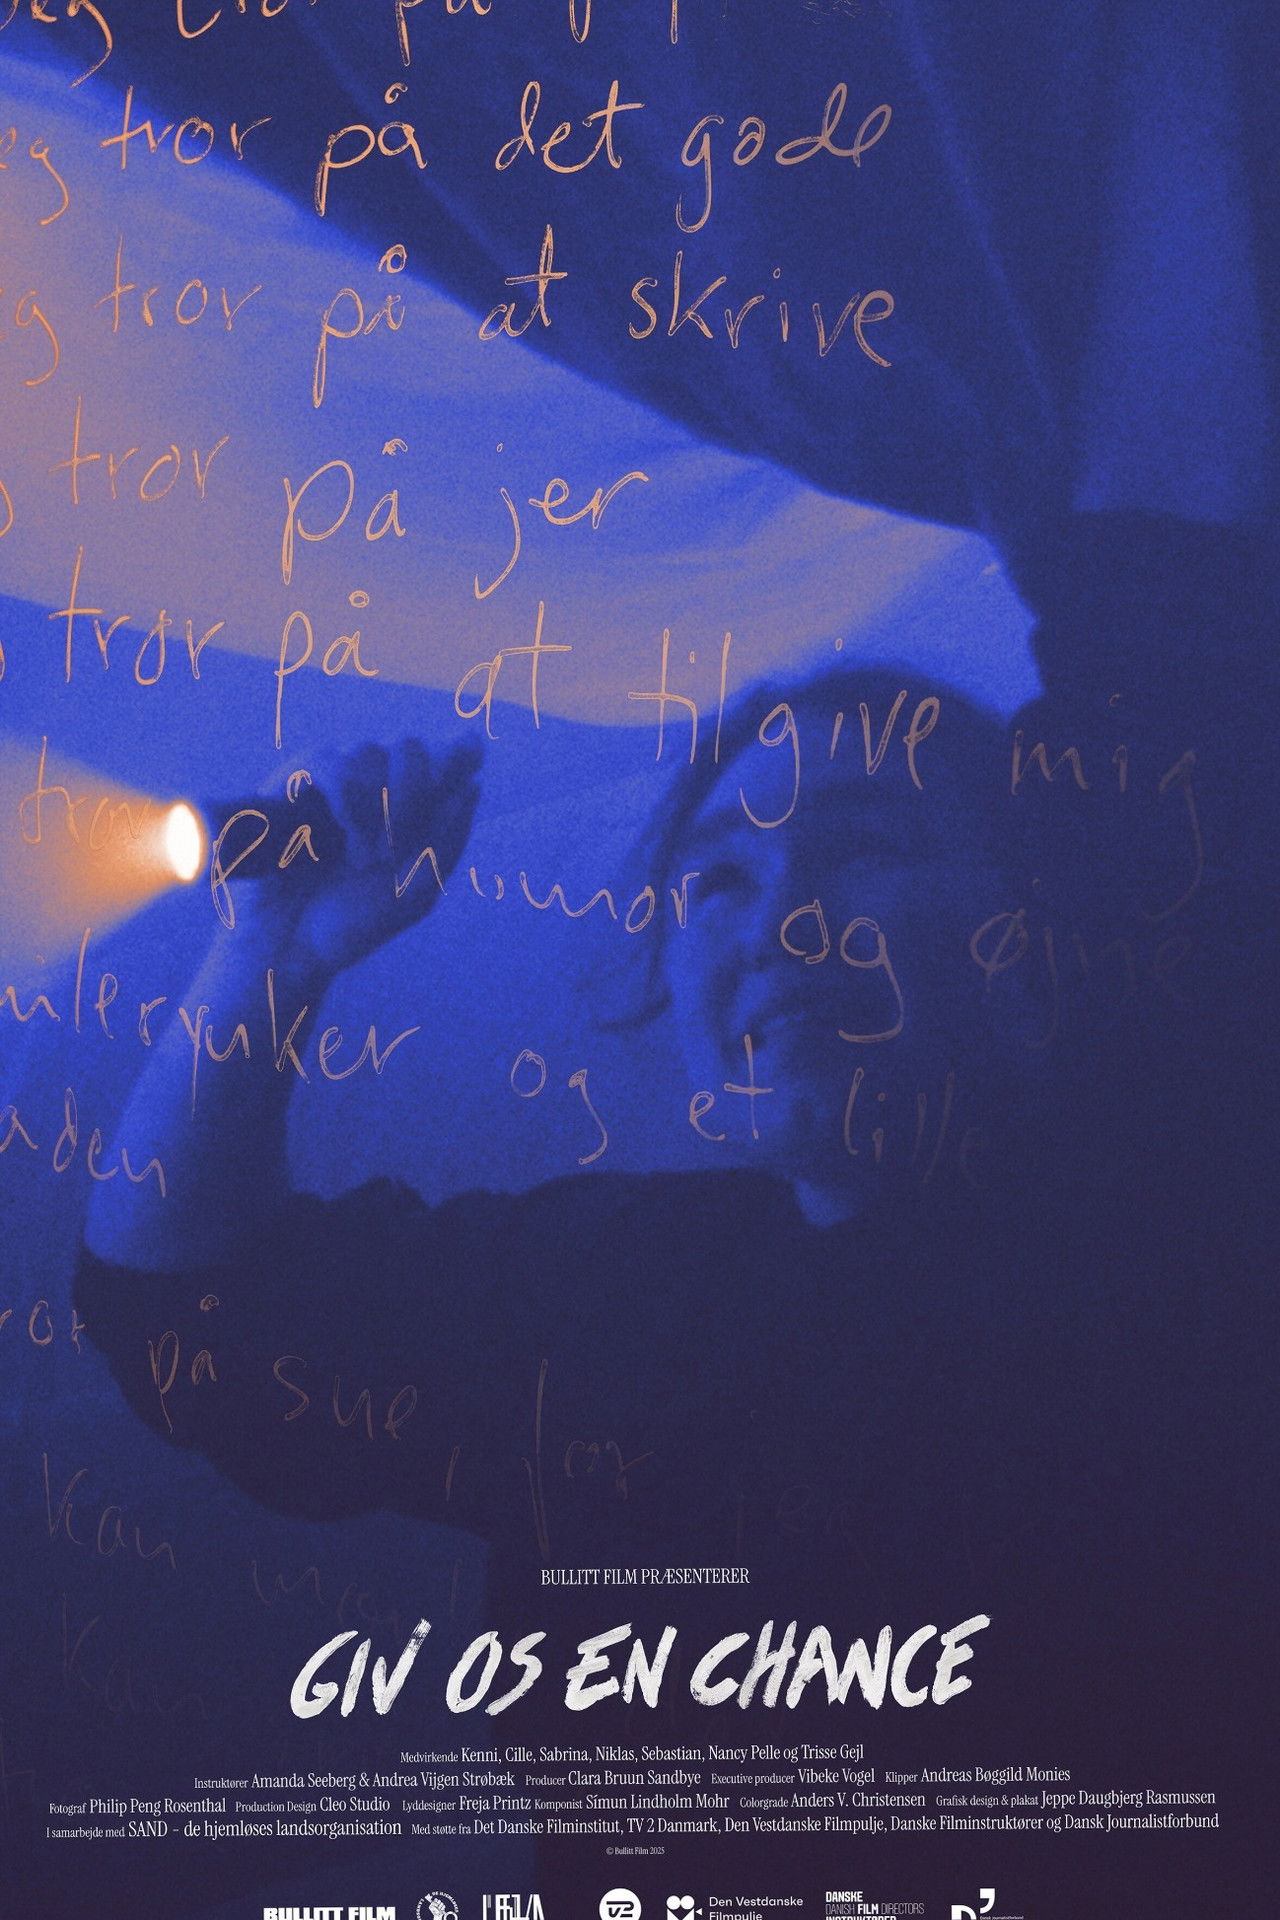 tror på
tror på det gode
tror på at skrive
tror på jer
tror på at tilgive mig
tror på humor og øjne
og et lille
på
kan
kan
BULLITT FILM PRÆSENTERER
GIV OS EN CHANCE
Medvirkende Kenni, Cille, Sabrina, Niklas, Sebastian, Nancy Pelle og Trisse Gejl
Instruktører Amanda Seeberg & Andrea Vijgen Strøbæk Producer Clara Bruun Sandbye Executive producer Vibeke Vogel Klipper Andreas Bøggild Monies
Fotograf Philip Peng Rosenthal Production Design Cleo Studio Lyddesigner Freja Printz Komponist Símun Lindholm Mohr Colorgrade Anders V. Christensen Grafisk design & plakat Jeppe Daugbjerg Rasmussen
I samarbejde med SAND - de hjemløses landsorganisation Med støtte fra Det Danske Filminstitut, TV 2 Danmark, Den Vestdanske Filmpulje, Danske Filminstruktører og Dansk Journalistforbund
© Bullitt Film 2025
BULLITT FILM
Den Vestdanske
Filmpulje
DANSKE
DANISH FILM DIRECTORS